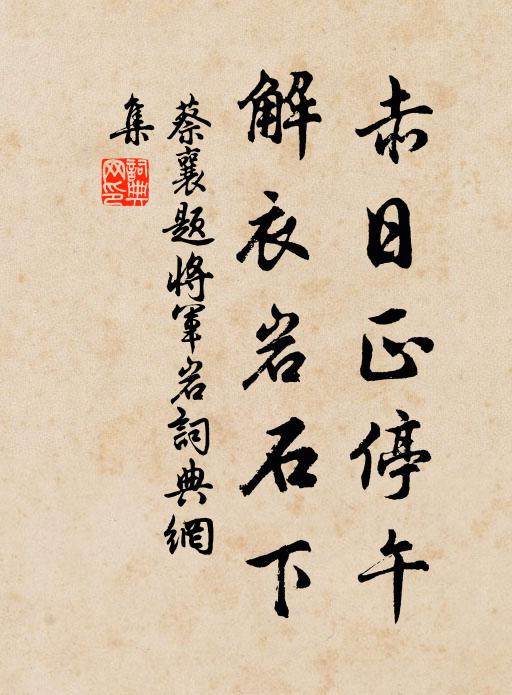 赤日正停午
解衣岩石下
蔡襄题将軍岩詞典網
集
詞典
网印